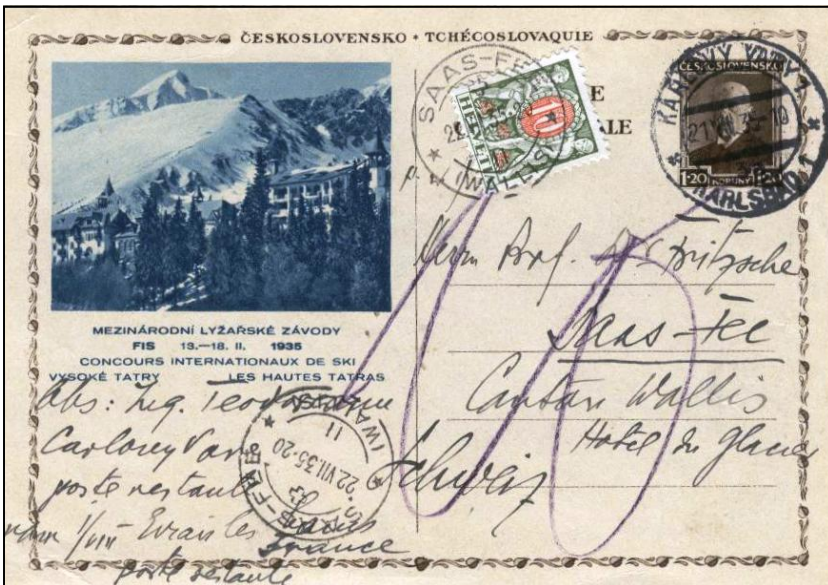 ČESKOSLOVENSKO • TCHÉCOSLOVAQUIE
SAAS-FEE
(WALLIS)
HELVETIA
10
E
ALE
KARLOVY VARY 1
21 VII 35-10
KARLSBAD 1
ČESKOSLOVENSKO
1·20 KORUNY 1·20
MEZINÁRODNÍ LYŽAŘSKÉ ZÁVODY
FIS 13.—18. II. 1935
CONCOURS INTERNATIONAUX DE SKI
VYSOKÉ TATRY LES HAUTES TATRAS
Herrn Prof. Dr Fritzsche
Saas-Fee
Canton Wallis
Hotel du Glacier
Schweiz
10
Abs: Ing.
poste restante
Evian les Bains
France
poste restante
22.VII.35-20